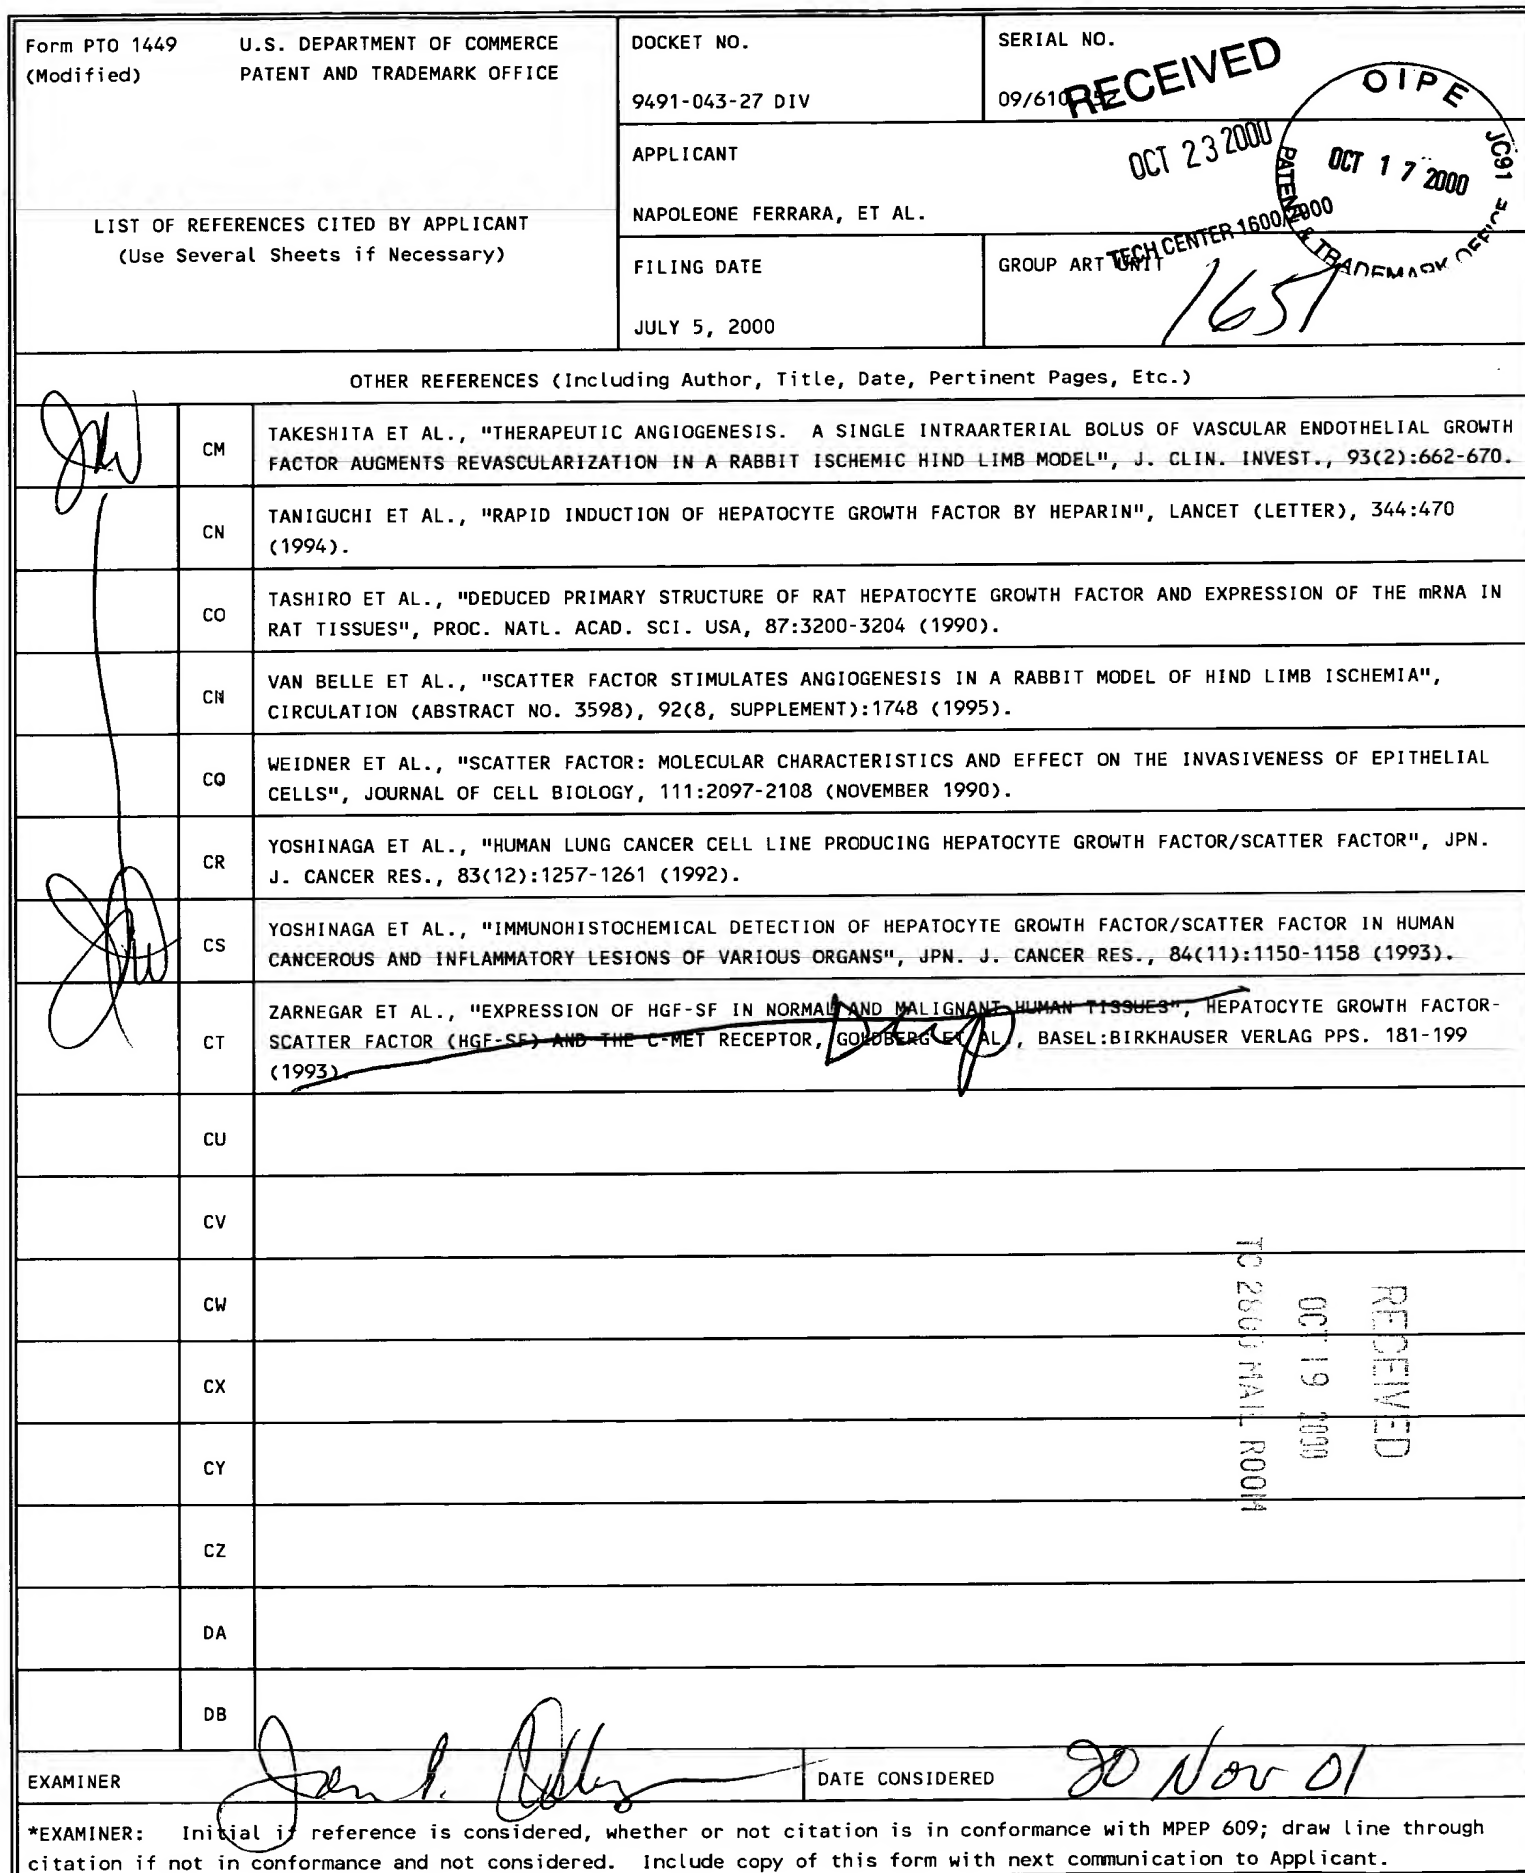 Form PTO 1449 U.S. DEPARTMENT OF COMMERCE
(Modified) PATENT AND TRADEMARK OFFICE
DOCKET NO.
9491-043-27 DIV
SERIAL NO.
09/610
RECEIVED
OCT 23 2000
TECH CENTER 1600/2900
OIPE
JC91
OCT 17 2000
PATENT & TRADEMARK OFFICE
LIST OF REFERENCES CITED BY APPLICANT
(Use Several Sheets if Necessary)
APPLICANT
NAPOLEONE FERRARA, ET AL.
FILING DATE
JULY 5, 2000
GROUP ART UNIT
1651
OTHER REFERENCES (Including Author, Title, Date, Pertinent Pages, Etc.)
CM
TAKESHITA ET AL., "THERAPEUTIC ANGIOGENESIS. A SINGLE INTRAARTERIAL BOLUS OF VASCULAR ENDOTHELIAL GROWTH
FACTOR AUGMENTS REVASCULARIZATION IN A RABBIT ISCHEMIC HIND LIMB MODEL", J. CLIN. INVEST., 93(2):662-670.
CN
TANIGUCHI ET AL., "RAPID INDUCTION OF HEPATOCYTE GROWTH FACTOR BY HEPARIN", LANCET (LETTER), 344:470
(1994).
CO
TASHIRO ET AL., "DEDUCED PRIMARY STRUCTURE OF RAT HEPATOCYTE GROWTH FACTOR AND EXPRESSION OF THE mRNA IN
RAT TISSUES", PROC. NATL. ACAD. SCI. USA, 87:3200-3204 (1990).
CN
VAN BELLE ET AL., "SCATTER FACTOR STIMULATES ANGIOGENESIS IN A RABBIT MODEL OF HIND LIMB ISCHEMIA",
CIRCULATION (ABSTRACT NO. 3598), 92(8, SUPPLEMENT):1748 (1995).
CQ
WEIDNER ET AL., "SCATTER FACTOR: MOLECULAR CHARACTERISTICS AND EFFECT ON THE INVASIVENESS OF EPITHELIAL
CELLS", JOURNAL OF CELL BIOLOGY, 111:2097-2108 (NOVEMBER 1990).
CR
YOSHINAGA ET AL., "HUMAN LUNG CANCER CELL LINE PRODUCING HEPATOCYTE GROWTH FACTOR/SCATTER FACTOR", JPN.
J. CANCER RES., 83(12):1257-1261 (1992).
CS
YOSHINAGA ET AL., "IMMUNOHISTOCHEMICAL DETECTION OF HEPATOCYTE GROWTH FACTOR/SCATTER FACTOR IN HUMAN
CANCEROUS AND INFLAMMATORY LESIONS OF VARIOUS ORGANS", JPN. J. CANCER RES., 84(11):1150-1158 (1993).
CT
ZARNEGAR ET AL., "EXPRESSION OF HGF-SF IN NORMAL AND MALIGNANT HUMAN TISSUES", HEPATOCYTE GROWTH FACTOR-
SCATTER FACTOR (HGF-SF) AND THE C-MET RECEPTOR, GOLDBERG ET AL., BASEL:BIRKHAUSER VERLAG PPS. 181-199
(1993).
CU
CV
CW
CX
CY
CZ
DA
DB
RECEIVED
OCT 19 2000
TC 2800 MAIL ROOM
EXAMINER
DATE CONSIDERED
20 Nov 01
*EXAMINER: Initial if reference is considered, whether or not citation is in conformance with MPEP 609; draw line through
citation if not in conformance and not considered. Include copy of this form with next communication to Applicant.